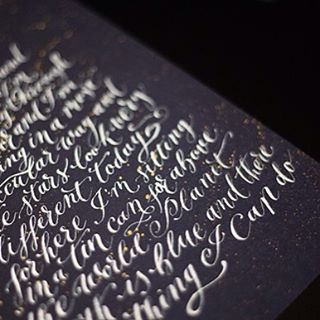 through
and I'm
in a most
way and
stars look very
different today
for here I'm sitting
in a tin can far above
the world Planet
is blue and there
thing I can do